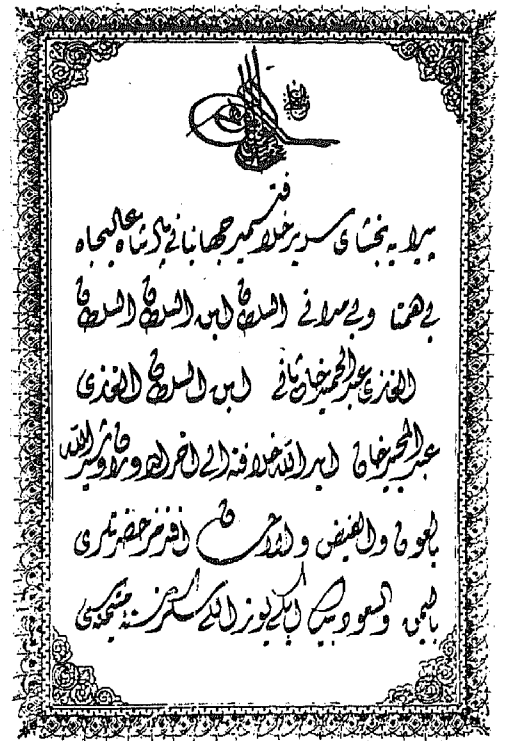 پیرایه بخشای سریر خلافتسمیر جهانبانی پادشاه عالیجاه
بی همتا وبی مدانی السلطان ابن السلطان السلطان
الغازی عبدالحمید خان ثانی ابن السلطان الغازی
عبدالمجید خان اید الله خلافته الی اخر الدوران وشید الله
بالعون والفیض والاحسان افندمز حضرتلری
بالیمن والسعود بیك ایکی یوز اللی سکز سنه